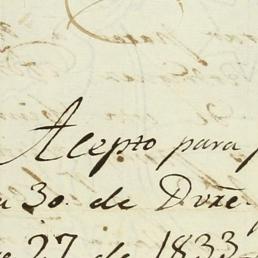 Acepto para
a 30 de Dvre.
27 de 1833